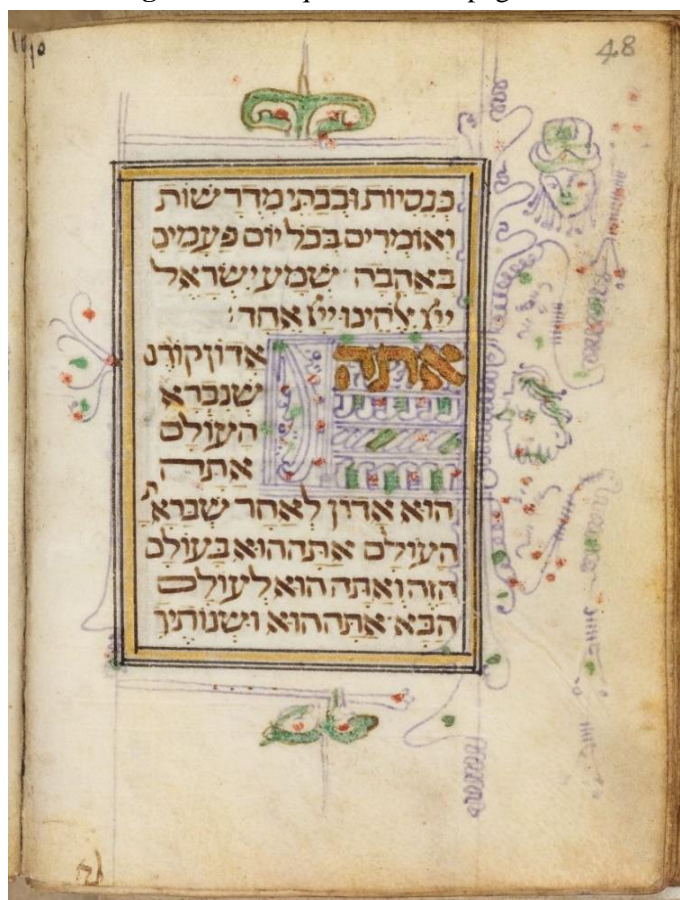 48
כנסיות ובבתי מדרשות
ואומרים בכל יום פעמים
באהבה שמע ישראל
ייי אלהינו ייי אחד:
אתה אדון קודם
שנברא
העולם
אתה
הוא אדון לאחר שנברא
העולם אתה הוא בעולם
הזה ואתה הוא לעולם
הבא אתה הוא ושנותיך